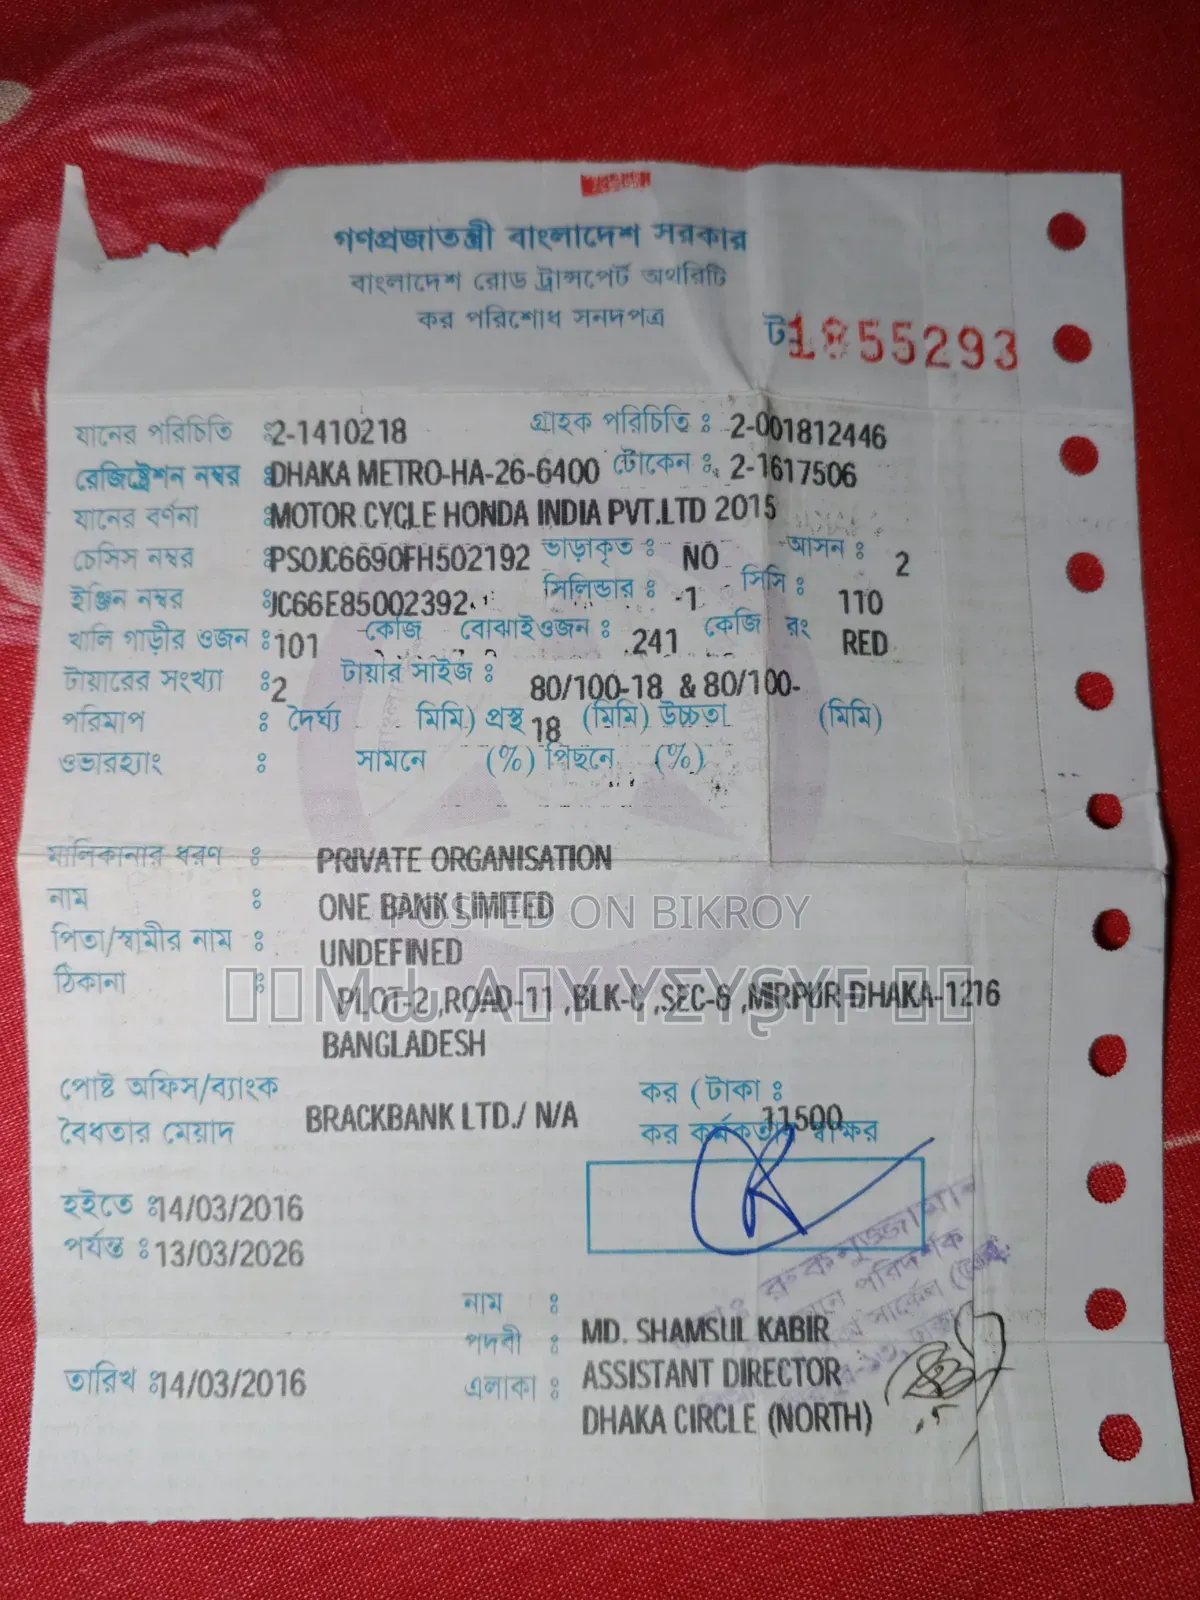 গণপ্রজাতন্ত্রী বাংলাদেশ সরকার
বাংলাদেশ রোড ট্রান্সপোর্ট অথরিটি
কর পরিশোধ সনদপত্র
ট 1855293
যানের পরিচিতি : 2-1410218 গ্রাহক পরিচিতি : 2-001812446
রেজিষ্ট্রেশন নম্বর : DHAKA METRO-HA-26-6400 টোকেন : 2-1617506
যানের বর্ণনা : MOTOR CYCLE HONDA INDIA PVT.LTD 2015
চেসিস নম্বর : PS0JC6690FH502192 ভাড়াকৃত : NO আসন : 2
ইঞ্জিন নম্বর : JC66E85002392 সিলিন্ডার : 1 সিসি : 110
খালি গাড়ীর ওজন : 101 কেজি বোঝাই ওজন : 241 কেজি রং RED
টায়ারের সংখ্যা : 2 টায়ার সাইজ : 80/100-18 & 80/100-
পরিমাপ : দৈর্ঘ্য মিমি) প্রস্থ 18 (মিমি) উচ্চতা (মিমি)
ওভারহ্যাং : সামনে (%) পিছনে (%)
মালিকানার ধরণ : PRIVATE ORGANISATION
নাম : ONE BANK LIMITED
POSTED ON BIKROY
পিতা/স্বামীর নাম : UNDEFINED
ঠিকানা : PLOT-2 ,ROAD-11 ,BLK-C ,SEC-6 ,MIRPUR-DHAKA-1216
BANGLADESH
পোষ্ট অফিস/ব্যাংক BRACKBANK LTD./ N/A কর (টাকা : 11500
বৈধতার মেয়াদ কর কর্মকর্তার স্বাক্ষর
হইতে : 14/03/2016
পর্যন্ত : 13/03/2026
নাম : MD. SHAMSUL KABIR
পদবী : ASSISTANT DIRECTOR
তারিখ : 14/03/2016 এলাকা : DHAKA CIRCLE (NORTH)